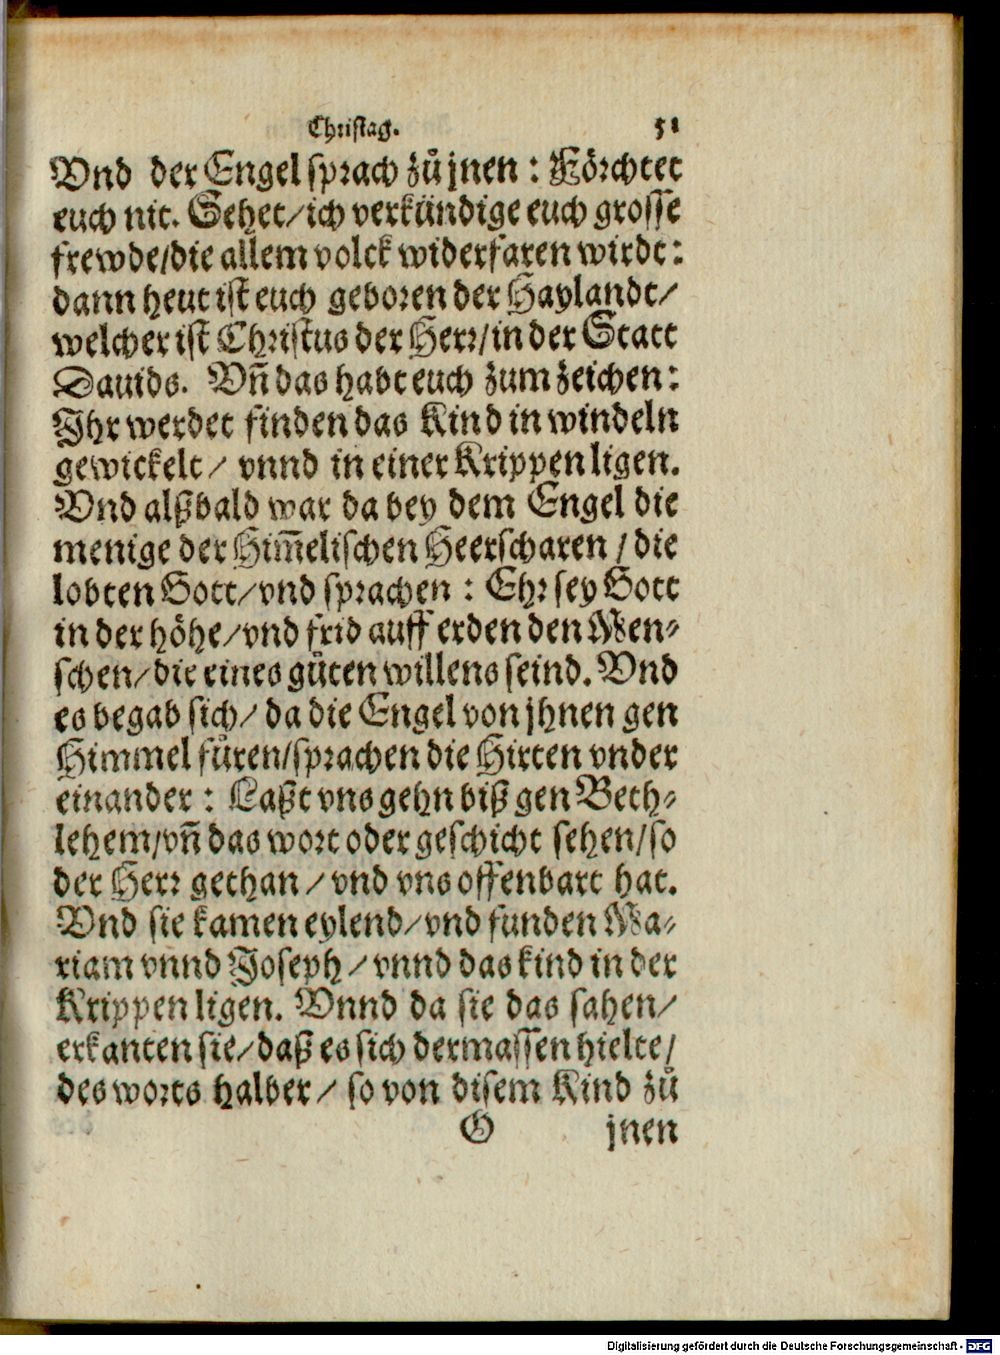 Christag. 51
Vnd der Engel sprach zů jnen : Förchtet
euch nit. Sehet/ ich verkündige euch grosse
frewde/die allem volck widerfaren wirdt:
dann heut ist euch geboren der Haylandt/
welcher ist Christus der Herr/in der Statt
Dauids. Vñ das habt euch zum zeichen:
Ihr werdet finden das Kind in windeln
gewickelt/ vnnd in einer Krippen ligen.
Vnd alßbald war da bey dem Engel die
menige der Him̃elischen Heerscharen / die
lobten Gott/vnd sprachen : Ehr sey Gott
in der höhe/vnd frid auff erden den Men⸗
schen/die eines gůten willens seind. Vnd
es begab sich/ da die Engel von jhnen gen
Himmel fůren/sprachen die Hirten vnder
einander : Laßt vns gehn biß gen Beth⸗
lehem/vñ das wort oder geschicht sehen/so
der Herr gethan / vnd vns offenbart hat.
Vnd sie kamen eylend/vnd funden Ma⸗
riam vnnd Joseph / vnnd das kind in der
Krippen ligen. Vnnd da sie das sahen/
erkanten sie/daß es sich dermassen hielte/
des worts halber / so von disem Kind zů
G jnen
Digitalisierung gefördert durch die Deutsche Forschungsgemeinschaft - DFG